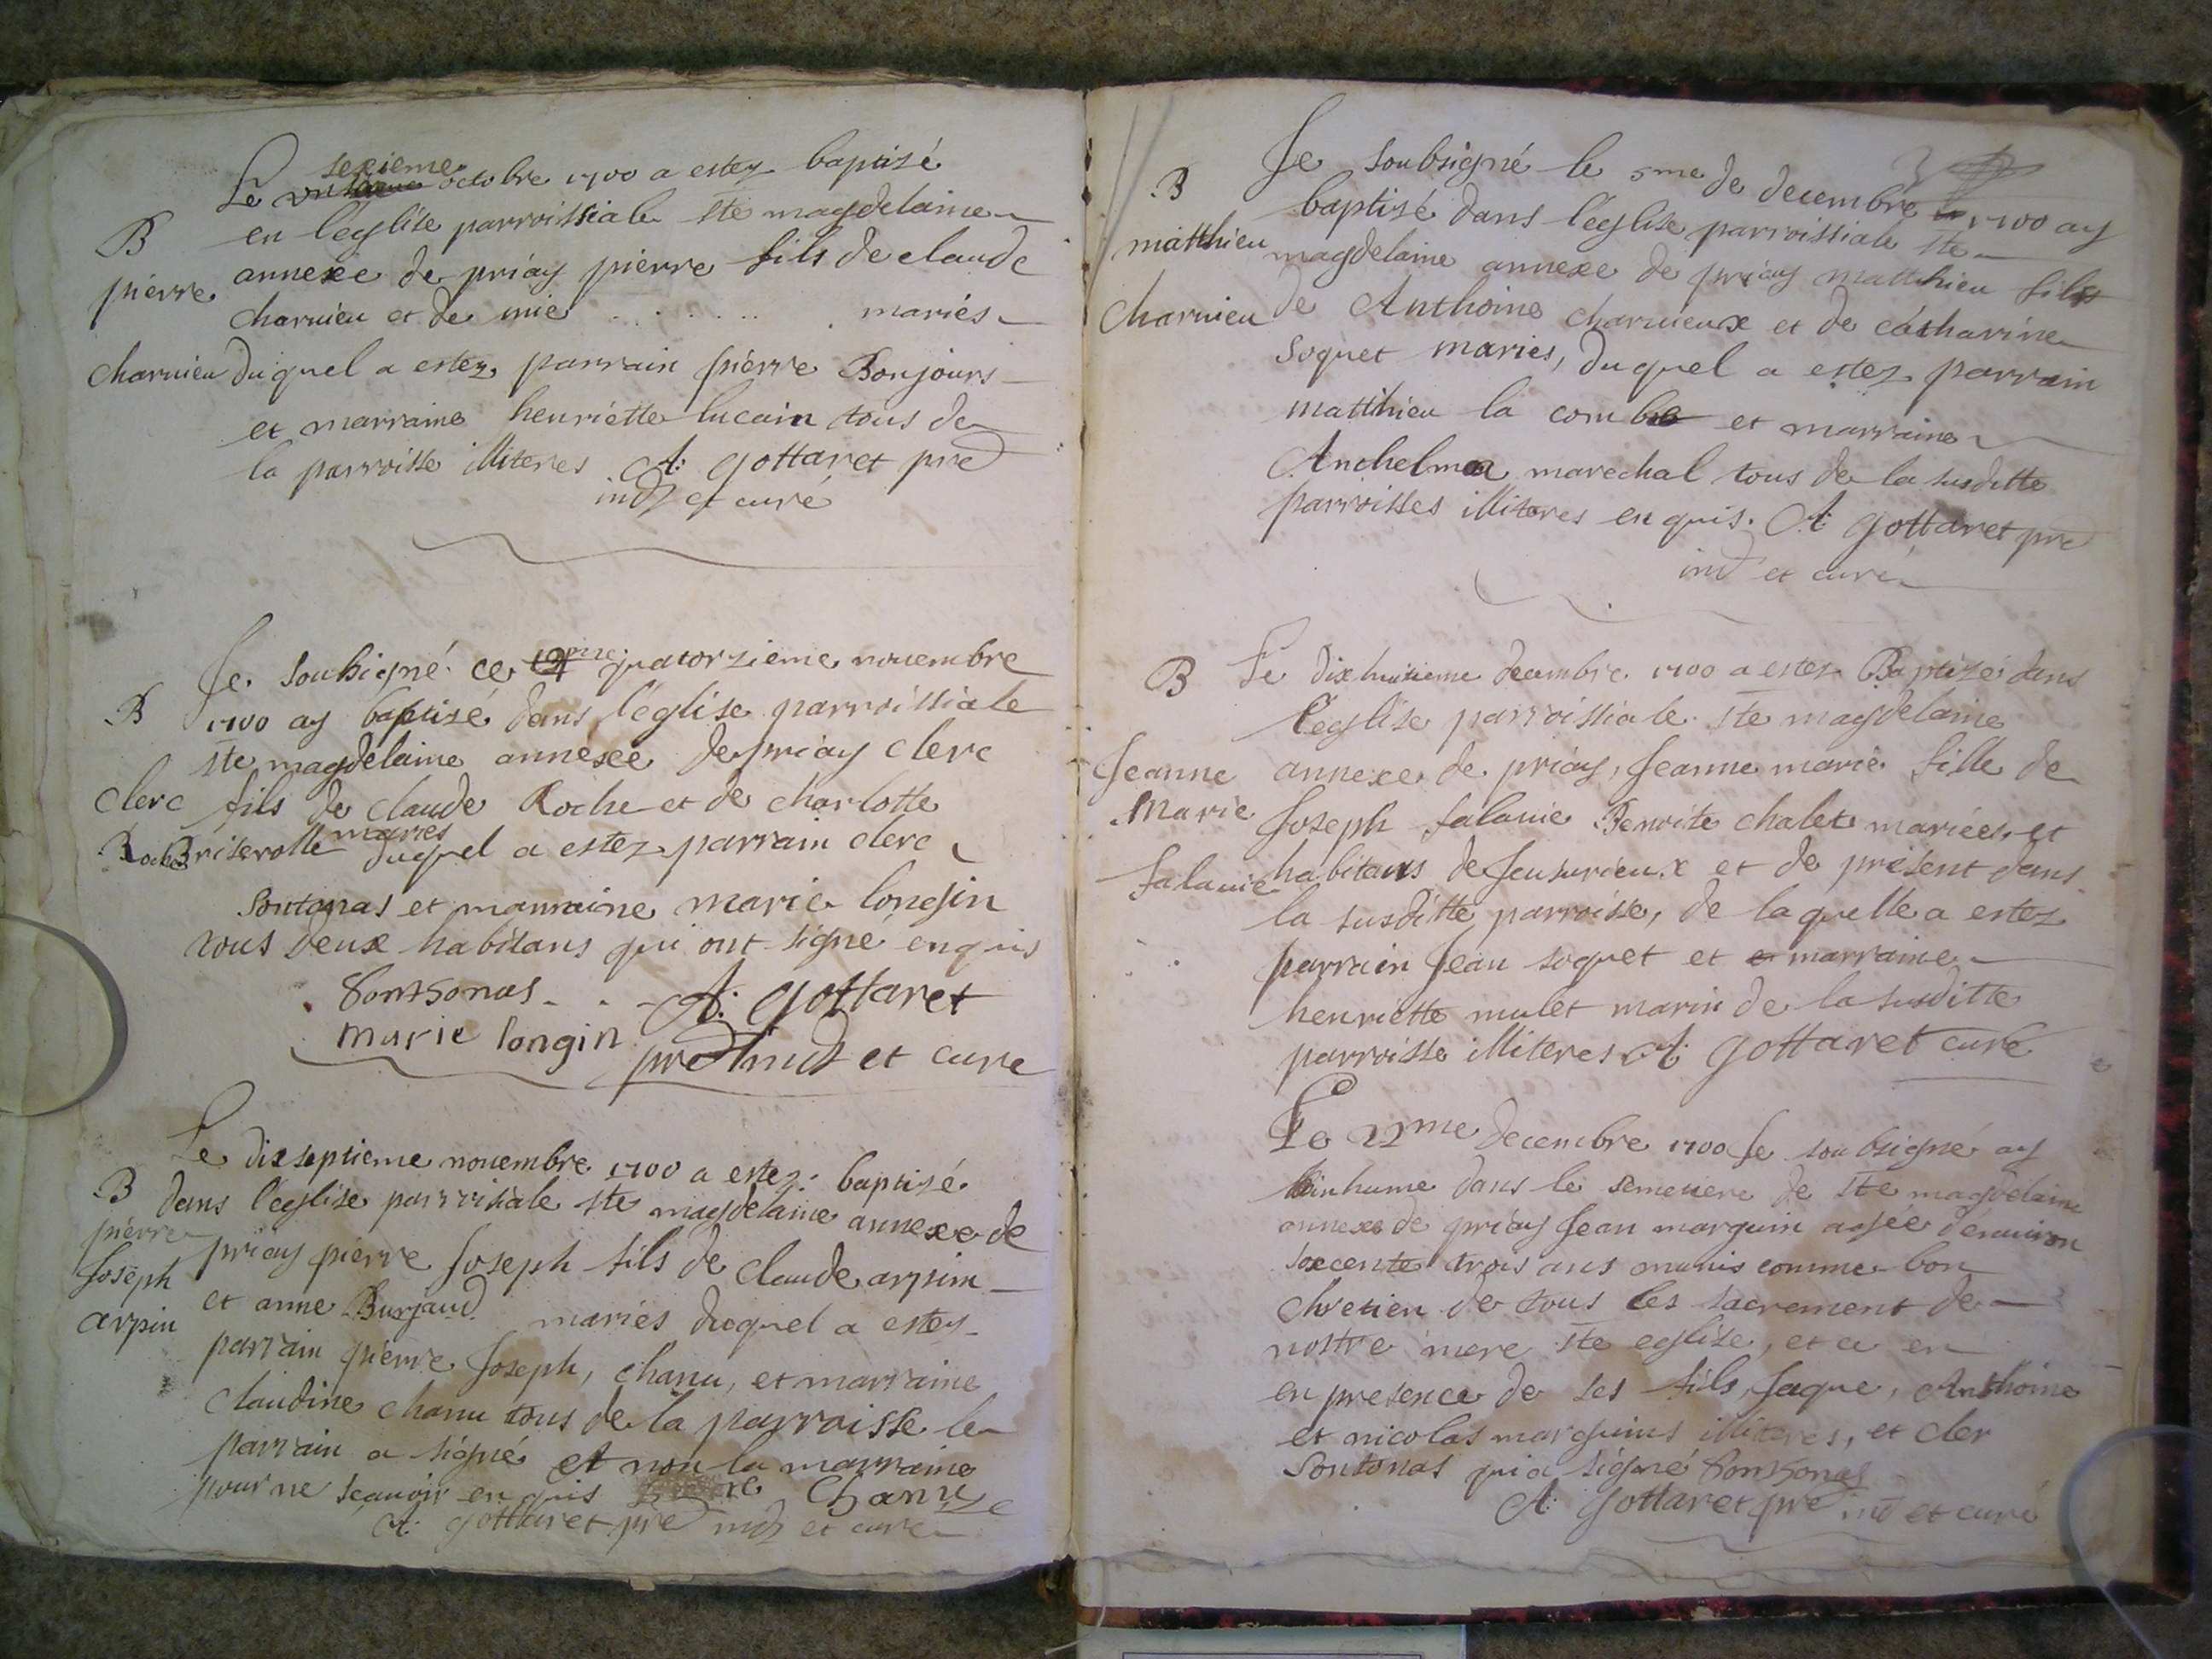 sexieme
Le octobre 1700 a estez baptisé
en l'eglise parroissiale ste magdelaine
B
annexe de priay pierre fils de claude
pierre
charuieu et de mie . . . . . . mariés
charuieu duquel a estez parrain pierre Bonjours
et marraine henriette lucain tous de
la parroisse illiteres A: gottaret pre
indz et curé
Je soubsigné ce quatorzieme nouembre
B
1700 ay baptisé dans l'eglise parroissiale
ste magdelaine annexe de priay clerc
clerc fils de claude Roche et de charlotte
maries
Roche Briserolle duquel a estez parrain clerc
sontonas et marraine marie longin
tous deux habitans qui ont signé enquis
Sontsonas - . - A: gottaret
marie longin pre indz et cure
Le dixseptieme nouembre 1700 a estez baptisé
B
dans l'eglise parroisiale ste magdelaine annexe de
pierre
priay pierre Joseph fils de claude arpin
Joseph
et anne Burjaud mariés duquel a estez
arpin
parrain pierre Joseph, chanu, et marraine
claudine chanu tous de la parroisse le
parrain a signé et non la marraine
pour ne scauoir enquis Chanu
A: gottaret pre indz et cure
Je soubsigné le 5me de decembre 1700 ay
B
baptisé dans l'eglise parroissiale ste
matthieu magdelaine annexe de priay matthieu fils
charuieu de Anthoine charuieux et de catharine
soquet mariés, duquel a estez parrain
matthieu la combe et marraine
Anthelma marechal tous de la susditte
parroisses illiteres enquis. A: gottaret pre
ind et curé
B Le dixhuitieme decembre 1700 a estez Baptizé dans
l'eglise parroissiale ste magdelaine
Jeanne annexe de priay, Jeanne marie fille de
Marie Joseph falauie Benoite chalet mariées, et
falauie habitans de Jeusurieux et de présent dans
la susditte parroisse, de laquelle a estez
parrain Jean soquet et marraine
henriette mulet marin de la susditte
parroisse illiteres A: gottaret curé
Le 22me decembre 1700 Je soubsigné ay
inhume dans le semetiere de Ste magdelaine
annexe de priay Jean marguin agée d'enuiron
soxcente trois ans munis comme bon
chretien de tous les sacrement de
nostre mere ste eglise, et ce en
en presence de ses fils, Jaque, Anthoine
et nicolas marguins illiteres, et cler
Sontonas qui a signé Sontsonas
A: gottaret pre ind et curé